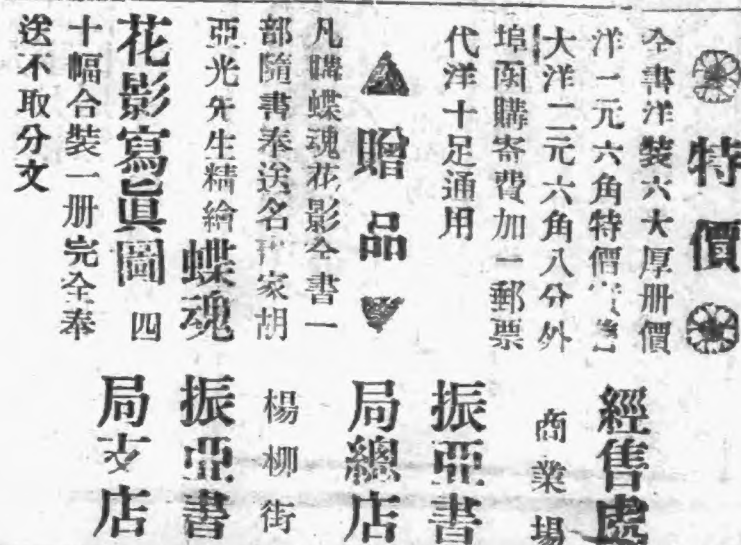 特價
全書洋裝六大厚册價
洋一元六角特價
大洋二元六角八分外
埠函購寄費加一郵票
代洋十足通用
贈品
凡購蝶魂花影全書一
部隨書奉送名家胡
亞光先生精繪蝶魂
花影寫眞圖四
十幅合裝一册完全奉
送不取分文
經售處
商業場
振亞書
局總店
楊柳街
振亞書
局支店